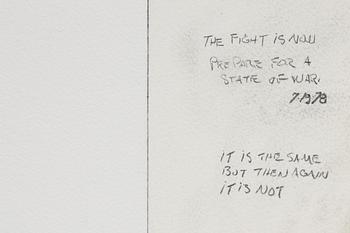 THE FIGHT IS NOW
PREPARE FOR A
STATE OF WAR.
7-19-78
IT IS THE SAME
BUT THEN AGAIN
IT IS NOT